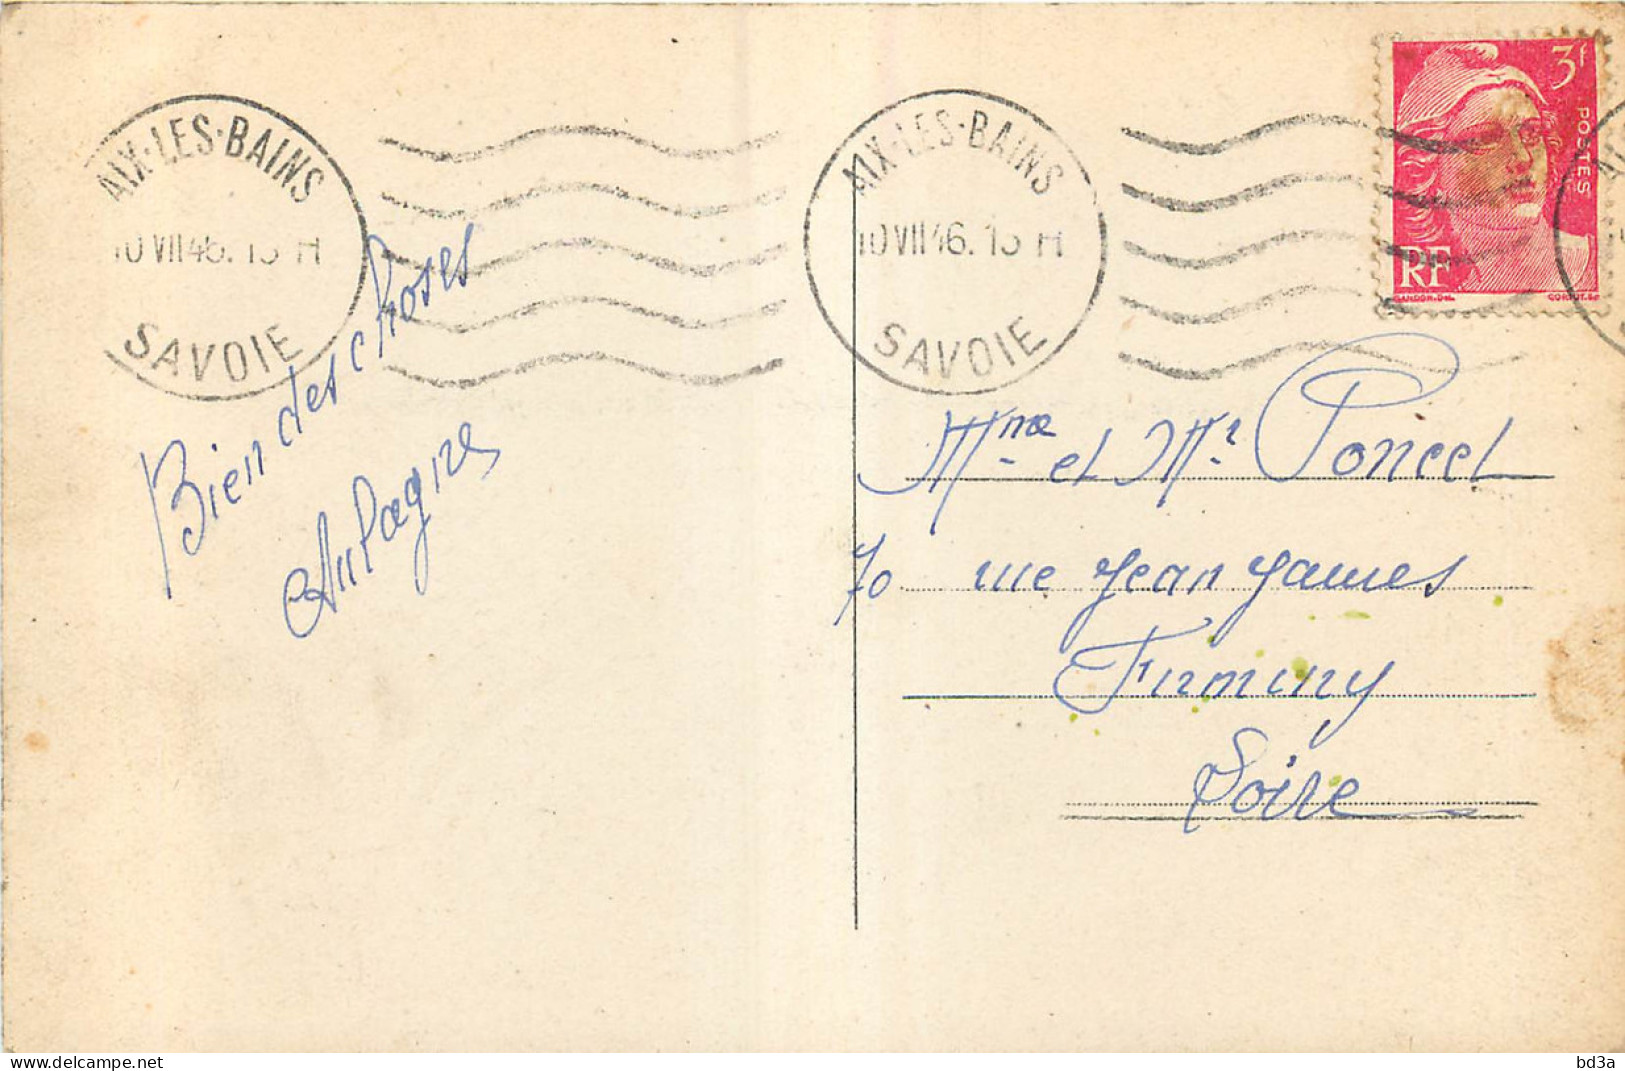 AIX-LES-BAINS
10 VII 46. 15 H
SAVOIE
AIX-LES-BAINS
10 VII 46. 15 H
SAVOIE
3f
POSTES
RF
GANDON. Del.
CORTOT. Sc
Bien des choses
Mme et Mr Poncet
70 rue Jean Jaures
Firminy
Loire
bd3a